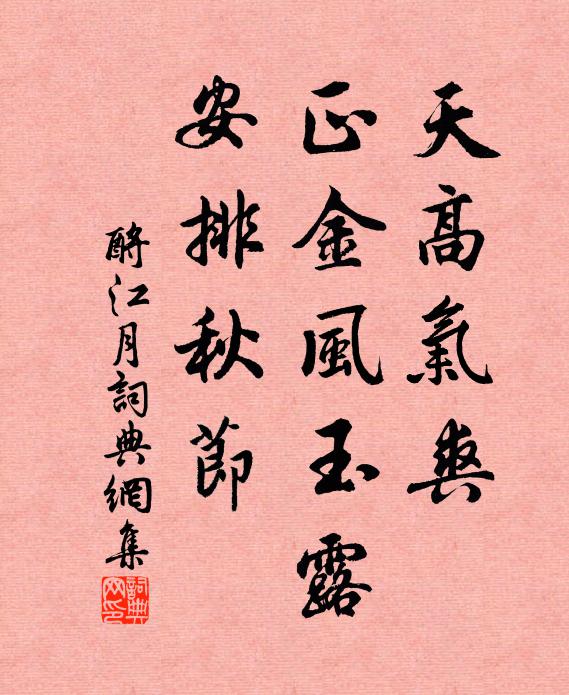 天高氣爽
正金風玉露
安排秋節
酹江月詞典網集
詞典
网印